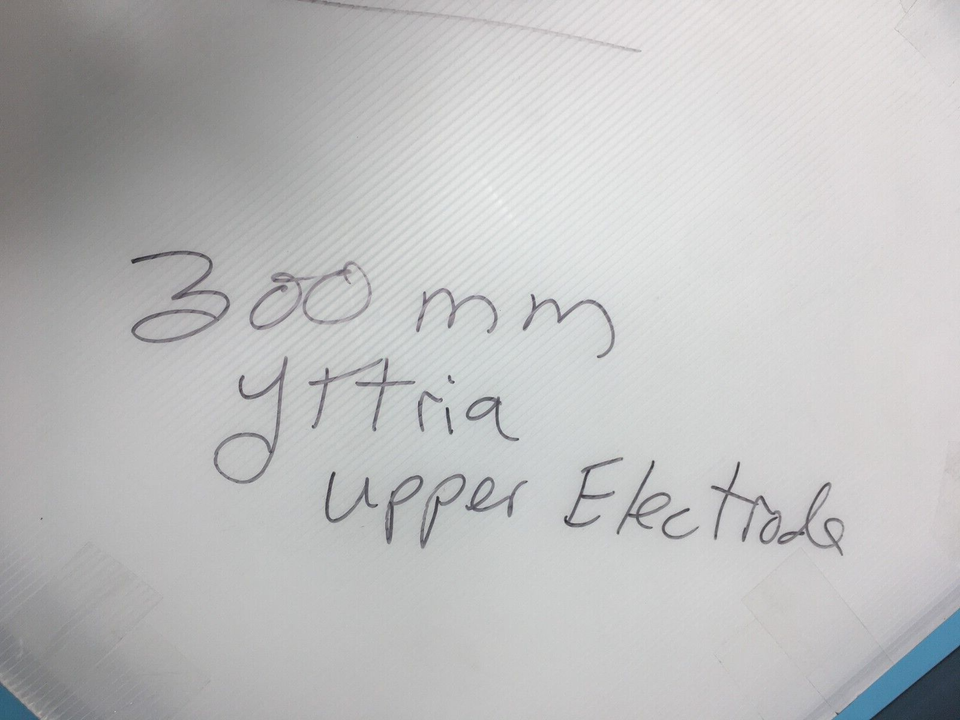 300 mm
yttria
upper Electrode